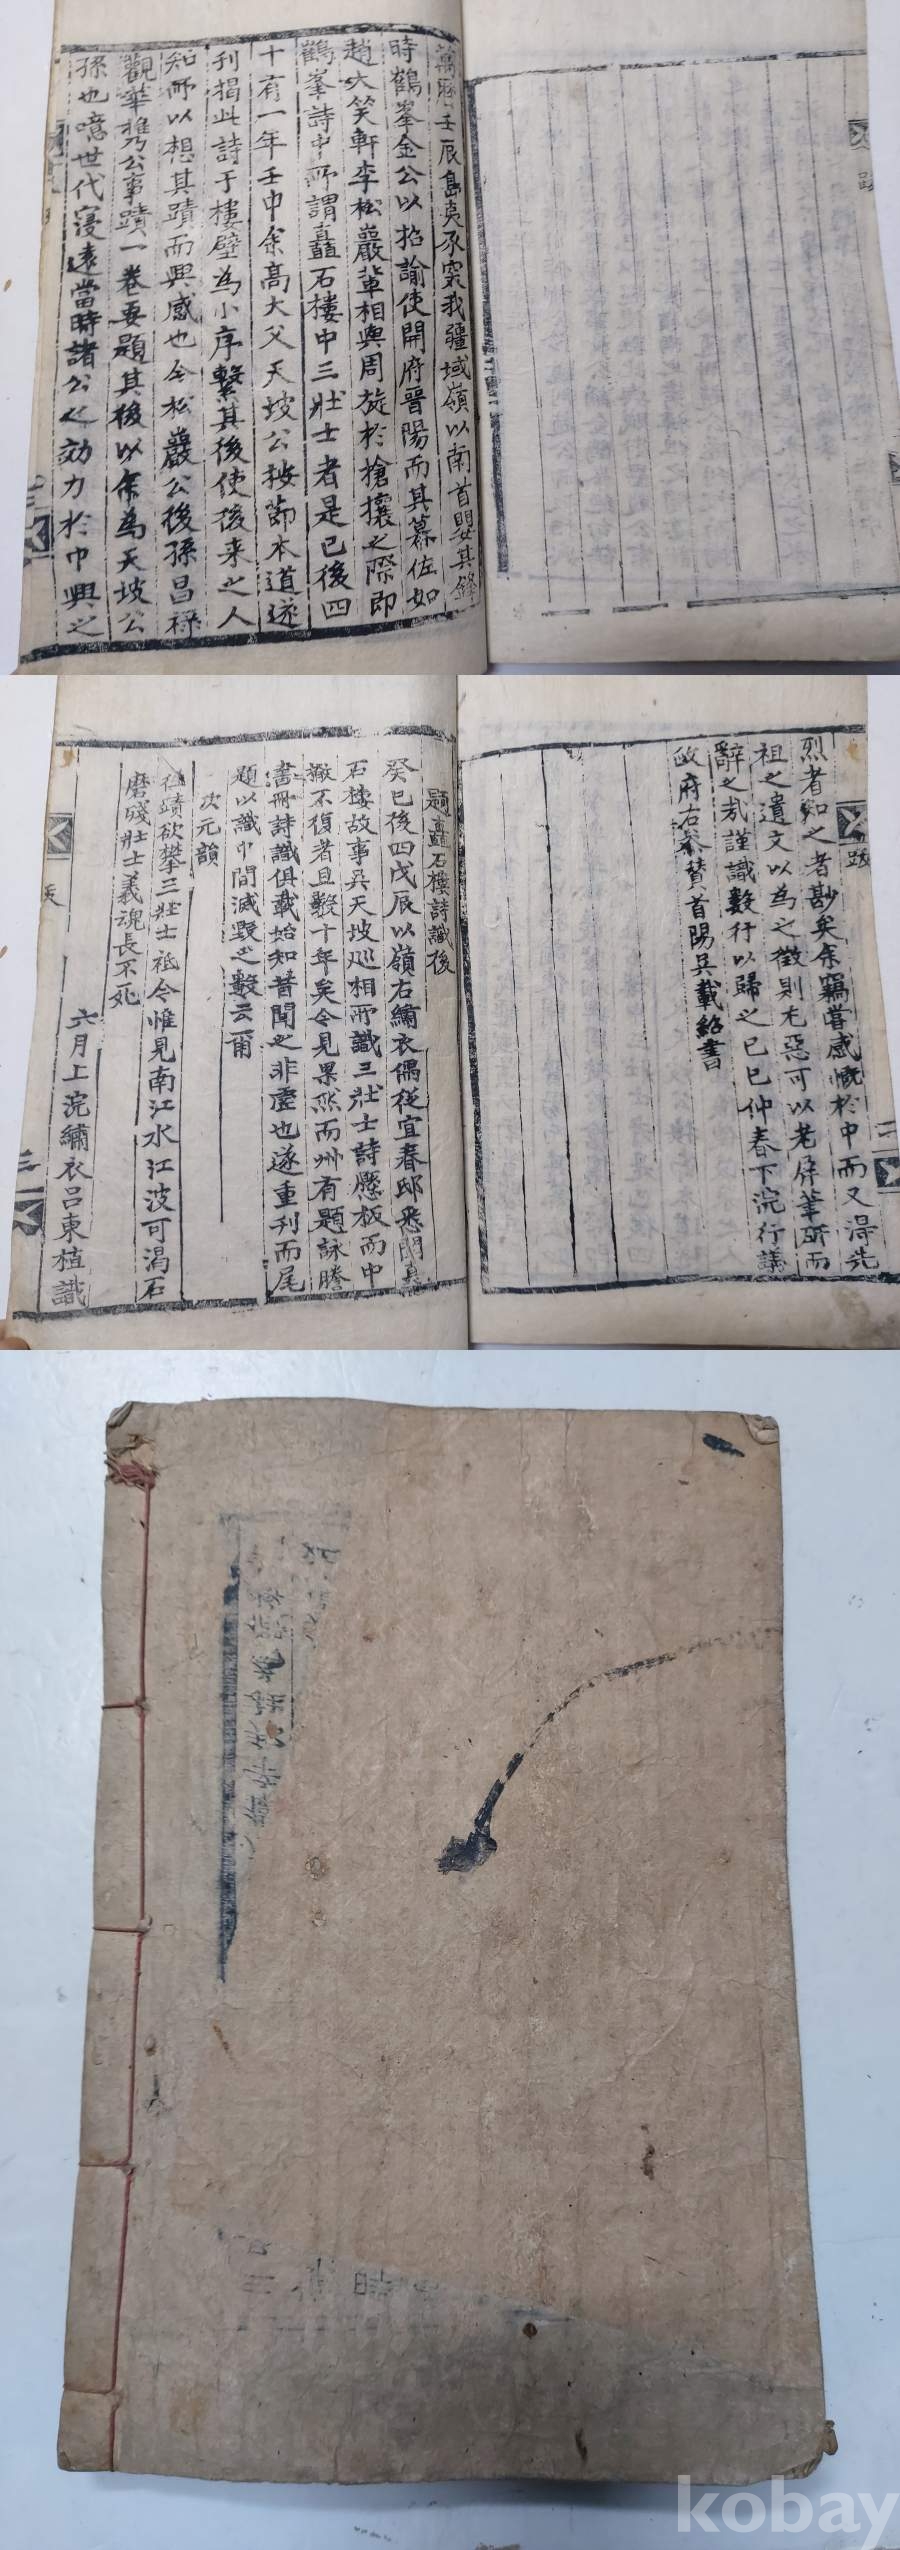 跋
萬曆壬辰島夷豕突我疆域嶺以南首嬰其鋒
時鶴峯金公以招諭使開府晋陽而其幕佐如
趙大笑軒李松巖輩相與周旋於搶攘之際即
鶴峯詩中所謂矗石樓中三壯士者是已後四
十有一年壬申余高大父天坡公按節本道遂
刊揭此詩于樓壁為小序繫其後使後来之人
知所以想其蹟而興感也今松巖公後孫昌祿
觀華携乃公事蹟一卷要題其後以余為天坡公
孫也噫世代寖遠當時諸公之効力於中興之
跋
二
烈者知之者尠矣余竊嘗感慨於中而又得先
祖之遺文以為之徵則尤惡可以老屏筆硏而
辭之哉謹識數行以歸之己巳仲春下浣行議
政府右叅賛首陽吳載紹書
題矗石樓詩識後
癸巳後四戊辰以嶺右繡衣偶從宜春邸悉聞矗
石樓故事吳天坡巡相所識三壯士詩懸板而中
撤不復者且數十年矣今見果然而州有題詠謄
書冊詩識俱載始知昔聞之非虛也遂重刊而尾
題以識中間滅毀之數云爾
次元韻
往蹟欲攀三壯士祗今惟見南江水江波可渴石
磨殘壯士義魂長不死
六月上浣繡衣呂東植識
kobay